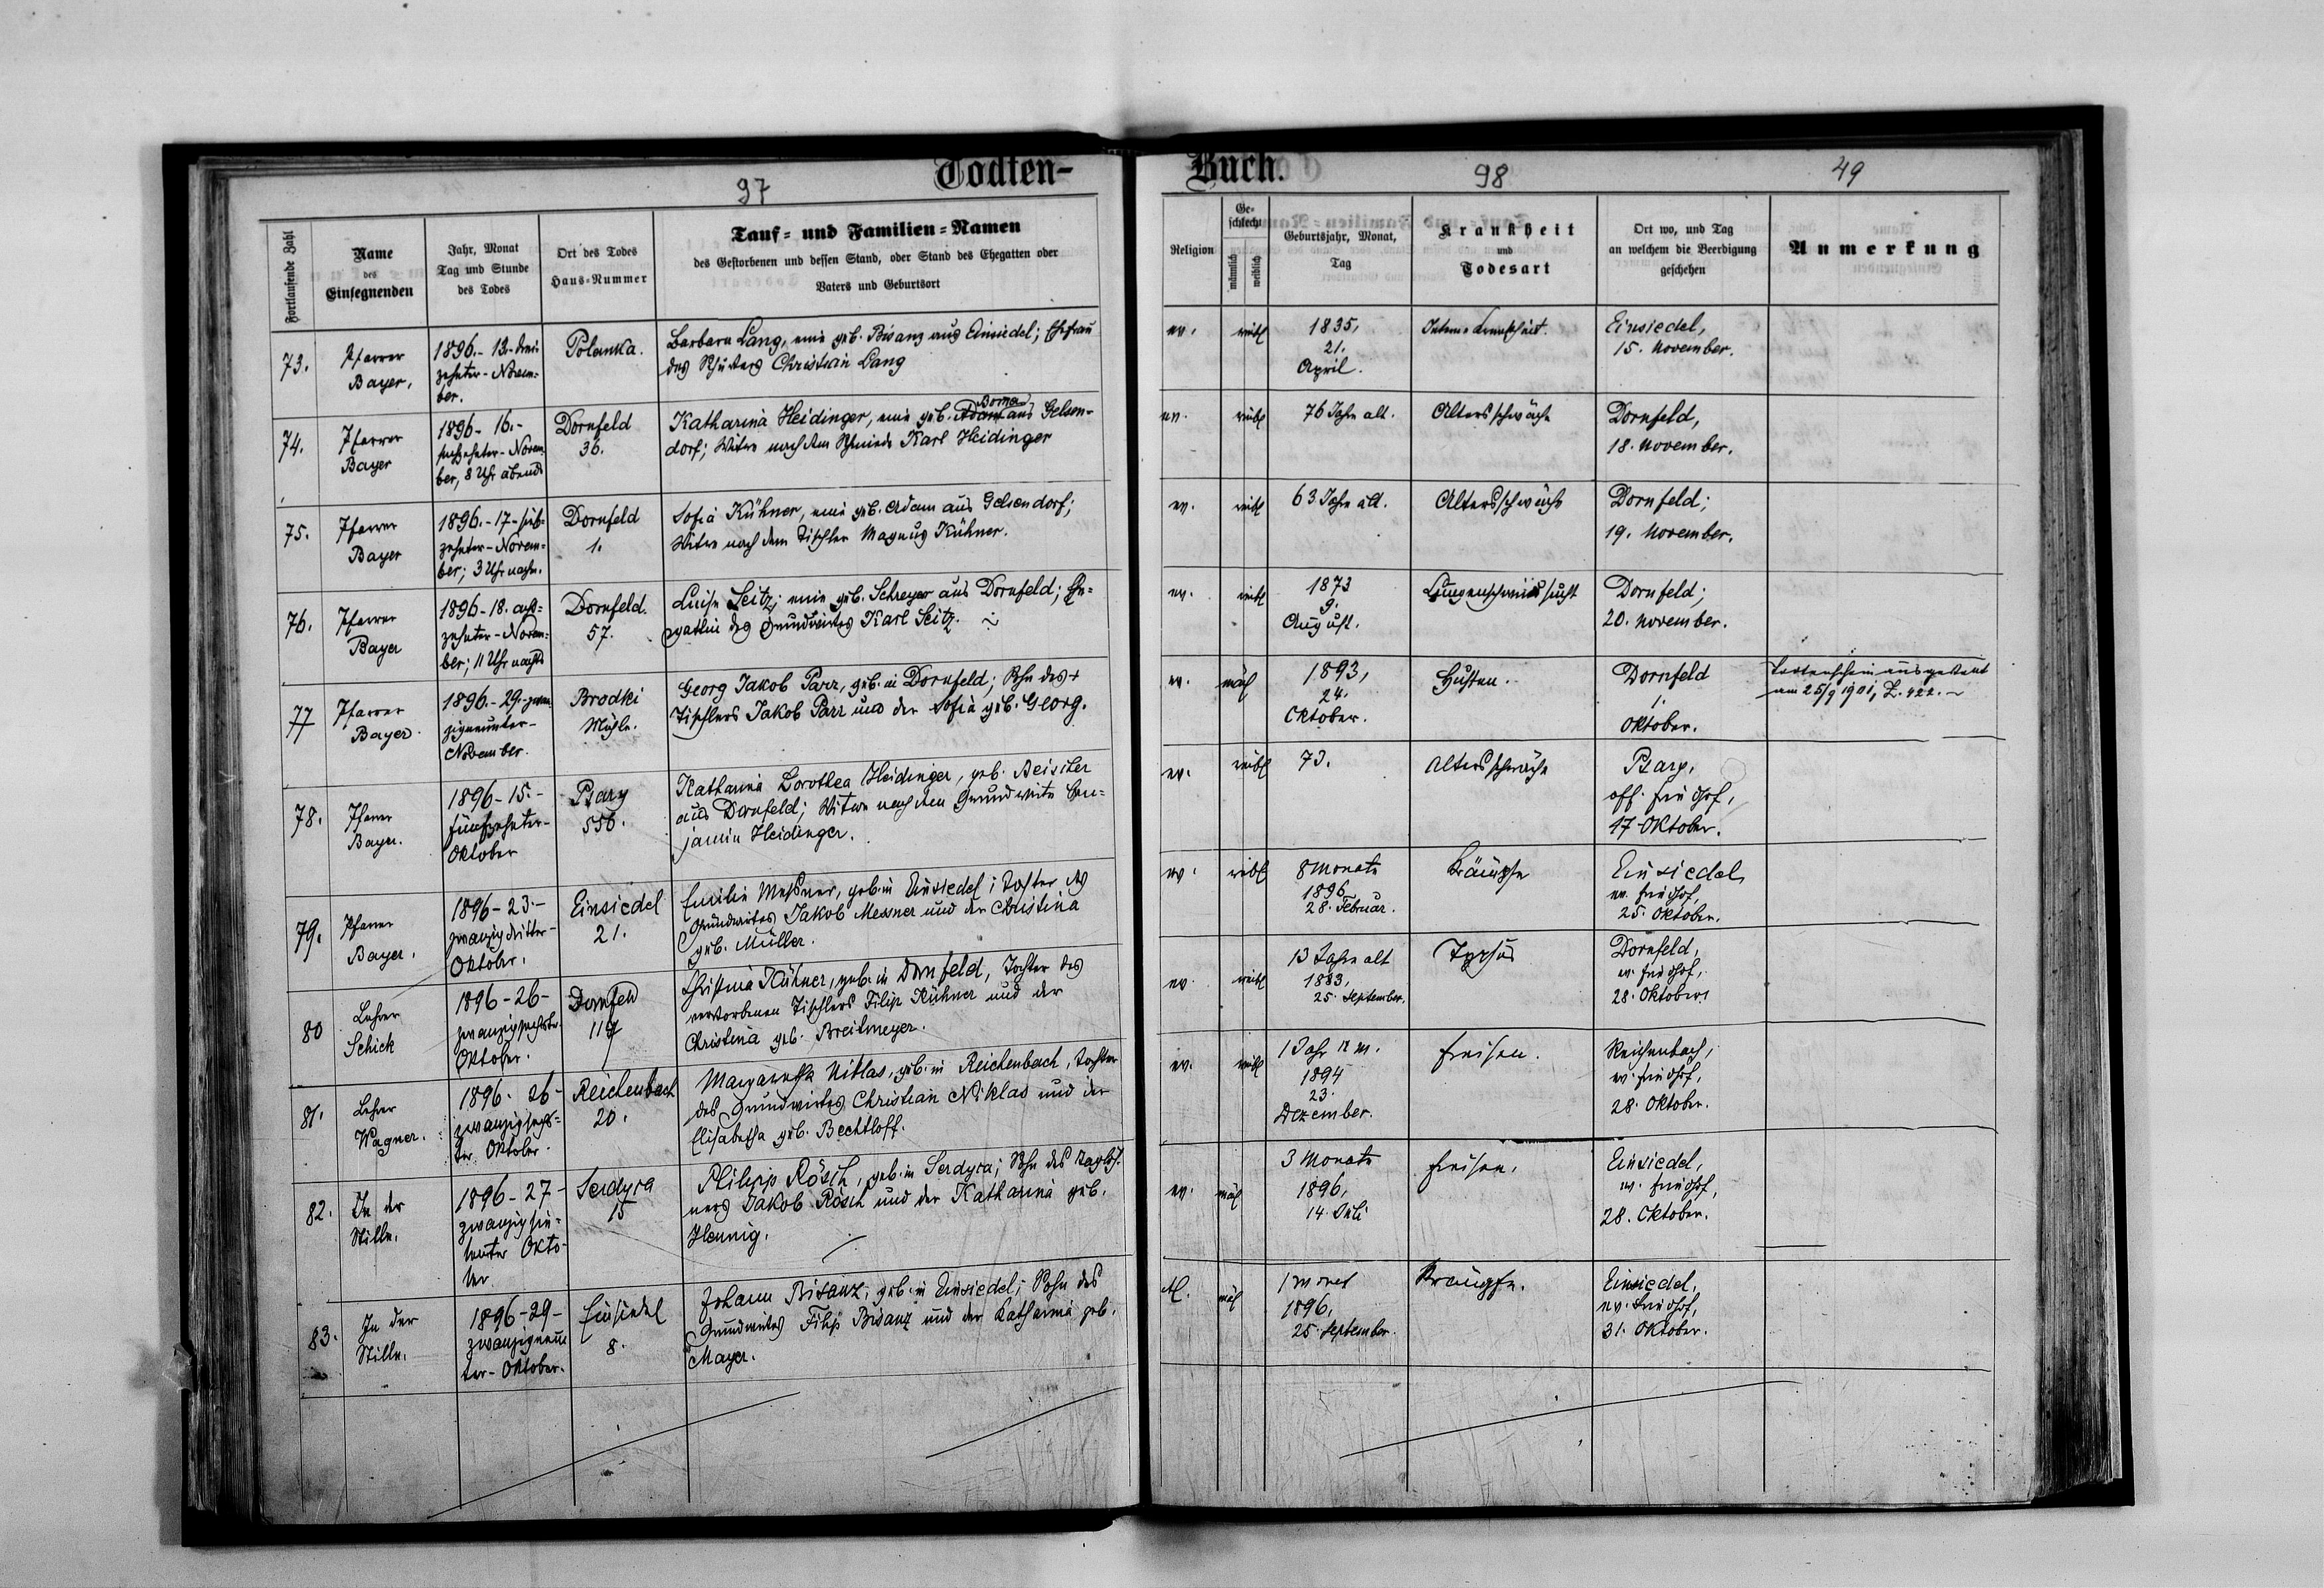 Todten-
Buch.
97
98
49
Fortlaufende Zahl
Name
des
Einsegnenden
Jahr, Monat
Tag und Stunde
des Todes
Ort des Todes
Haus-Nummer
Tauf- und Familien-Namen
des Gestorbenen und dessen Stand, oder Stand des Ehegatten oder
Vaters und Geburtsort
Religion
Ge-
schlecht
männlich
weiblich
Geburtsjahr, Monat,
Tag
Krankheit
und
Todesart
Ort wo, und Tag
an welchem die Beerdigung
geschehen
Anmerkung
73.
Pfarrer
Bayer.
1896.- 13.- drei-
zehnter - Novem-
ber.
Polanka.
Barbara Lang, eine geb. Bisanz aus Einsiedel; Ehefrau
des Christian Lang
ev.
weibl
1835,
21.
April.
Einsiedel,
15. November.
74.
Pfarrer
Bayer
1896- 16.-
sechzehnter - Novem-
ber, 8 Uhr abends
Dornfeld
36.
Katharina Heidinger, eine geb. Adam aus Gelsen-
dorf; Witwe nach dem Schmiede Karl Heidinger
ev.
weibl
76 Jahre alt.
Altersschwäche
Dornfeld,
18. November.
75.
Pfarrer
Bayer
1896.- 17- sieb-
zehnter - Novem-
ber; 3 Uhr nachm.
Dornfeld
1.
Sofia Kühner, eine geb. Adam aus Gelsendorf;
Witwe nach dem Tischler Magnus Kühner.
ev.
weibl
63 Jahre alt.
Altersschwäche
Dornfeld;
19. November.
76.
Pfarrer
Bayer
1896- 18. acht-
zehnter - Novem-
ber; 11 Uhr nachts
Dornfeld.
57.
Luise Seitz; eine geb. Schreyer aus Dornfeld; Ehe-
gattin des Grundwirtes Karl Seitz.
ev.
weibl
1873
9.
August.
Lungenschwindsucht
Dornfeld;
20. November.
77
Pfarrer
Bayer.
1896.- 29.- zwan-
zigneunter -
November.
Brodki
Mühle.
Georg Jakob Parr, geb. in Dornfeld; Sohn des +
Tischlers Jakob Parr und der Sofia geb. Georg.
ev.
mäl
1893,
24.
Oktober.
Husten.
Dornfeld
1.
Oktober.
Totenschein ausgestellt
am 25/9 1901, Z. 422.
78.
Pfarrer
Bayer.
1896- 15.-
fünfzehnter -
Oktober
Psary
556.
Katharina Dorothea Heidinger, geb. Beisiker
aus Dornfeld; Witwe nach dem Grundwirte Ben-
jamin Heidinger.
ev.
weibl
73.
Altersschwäche
Psary,
Friedhof,
17 Oktober.
79.
Pfarrer
Bayer.
1896- 23.-
zwanzigdritter -
Oktober.
Einsiedel
21.
Emilie Messner, geb. in Einsiedel; Tochter des
Grundwirtes Jakob Messner und der Christina
geb. Müller.
ev.
weibl
8 Monate
1896
28. Februar.
Krämpfe
Einsiedel,
ev. Friedhof,
25. Oktober.
80
Lehrer
Schick
1896- 26-
zwanzigsechster
Oktober.
Dornfeld
117
Christina Kühner, geb. in Dornfeld, Tochter des
verstorbenen Tischlers Filip Kühner und der
Christina geb. Breitmeyer.
ev.
weibl
13 Jahre alt
1883,
25. September.
Typhus
Dornfeld,
ev. Friedhof,
28. Oktober.
81.
Lehrer
Wagner.
1896- 26-
zwanzigsechs-
ter Oktober.
Reichenbach
20.
Margaretha Niklas, geb. in Reichenbach, Tochter
des Grundwirtes Christian Niklas und der
Elisabetha geb. Bechtloff.
ev.
weibl
1 Jahr
1894
23.
Dezember.
Freisen.
Reichenbach,
ev. Friedhof,
28. Oktober.
82.
In der
Stille.
1896- 27-
zwanzigsie-
benter Okto-
ber
Serdyca
15
Philipp Rösch, geb. in Serdyca; Sohn des Taglöh-
ners Jakob Rösch und der Katharina geb.
Hennig.
ev.
mäl
3 Monate
1896,
14. Juli
Freisen.
Einsiedel,
ev. Friedhof,
28. Oktober.
83.
In der
Stille.
1896-29-
zwanzigneun
ter - Oktober.
Einsiedel
8.
Johann Bisanz; geb. in Einsiedel; Sohn des
Grundwirtes Filip Bisanz und der Katharina geb.
Mayer.
mäl
1 Monat
1896,
25. September.
Krämpfe.
Einsiedel,
ev. Friedhof,
31. Oktober.